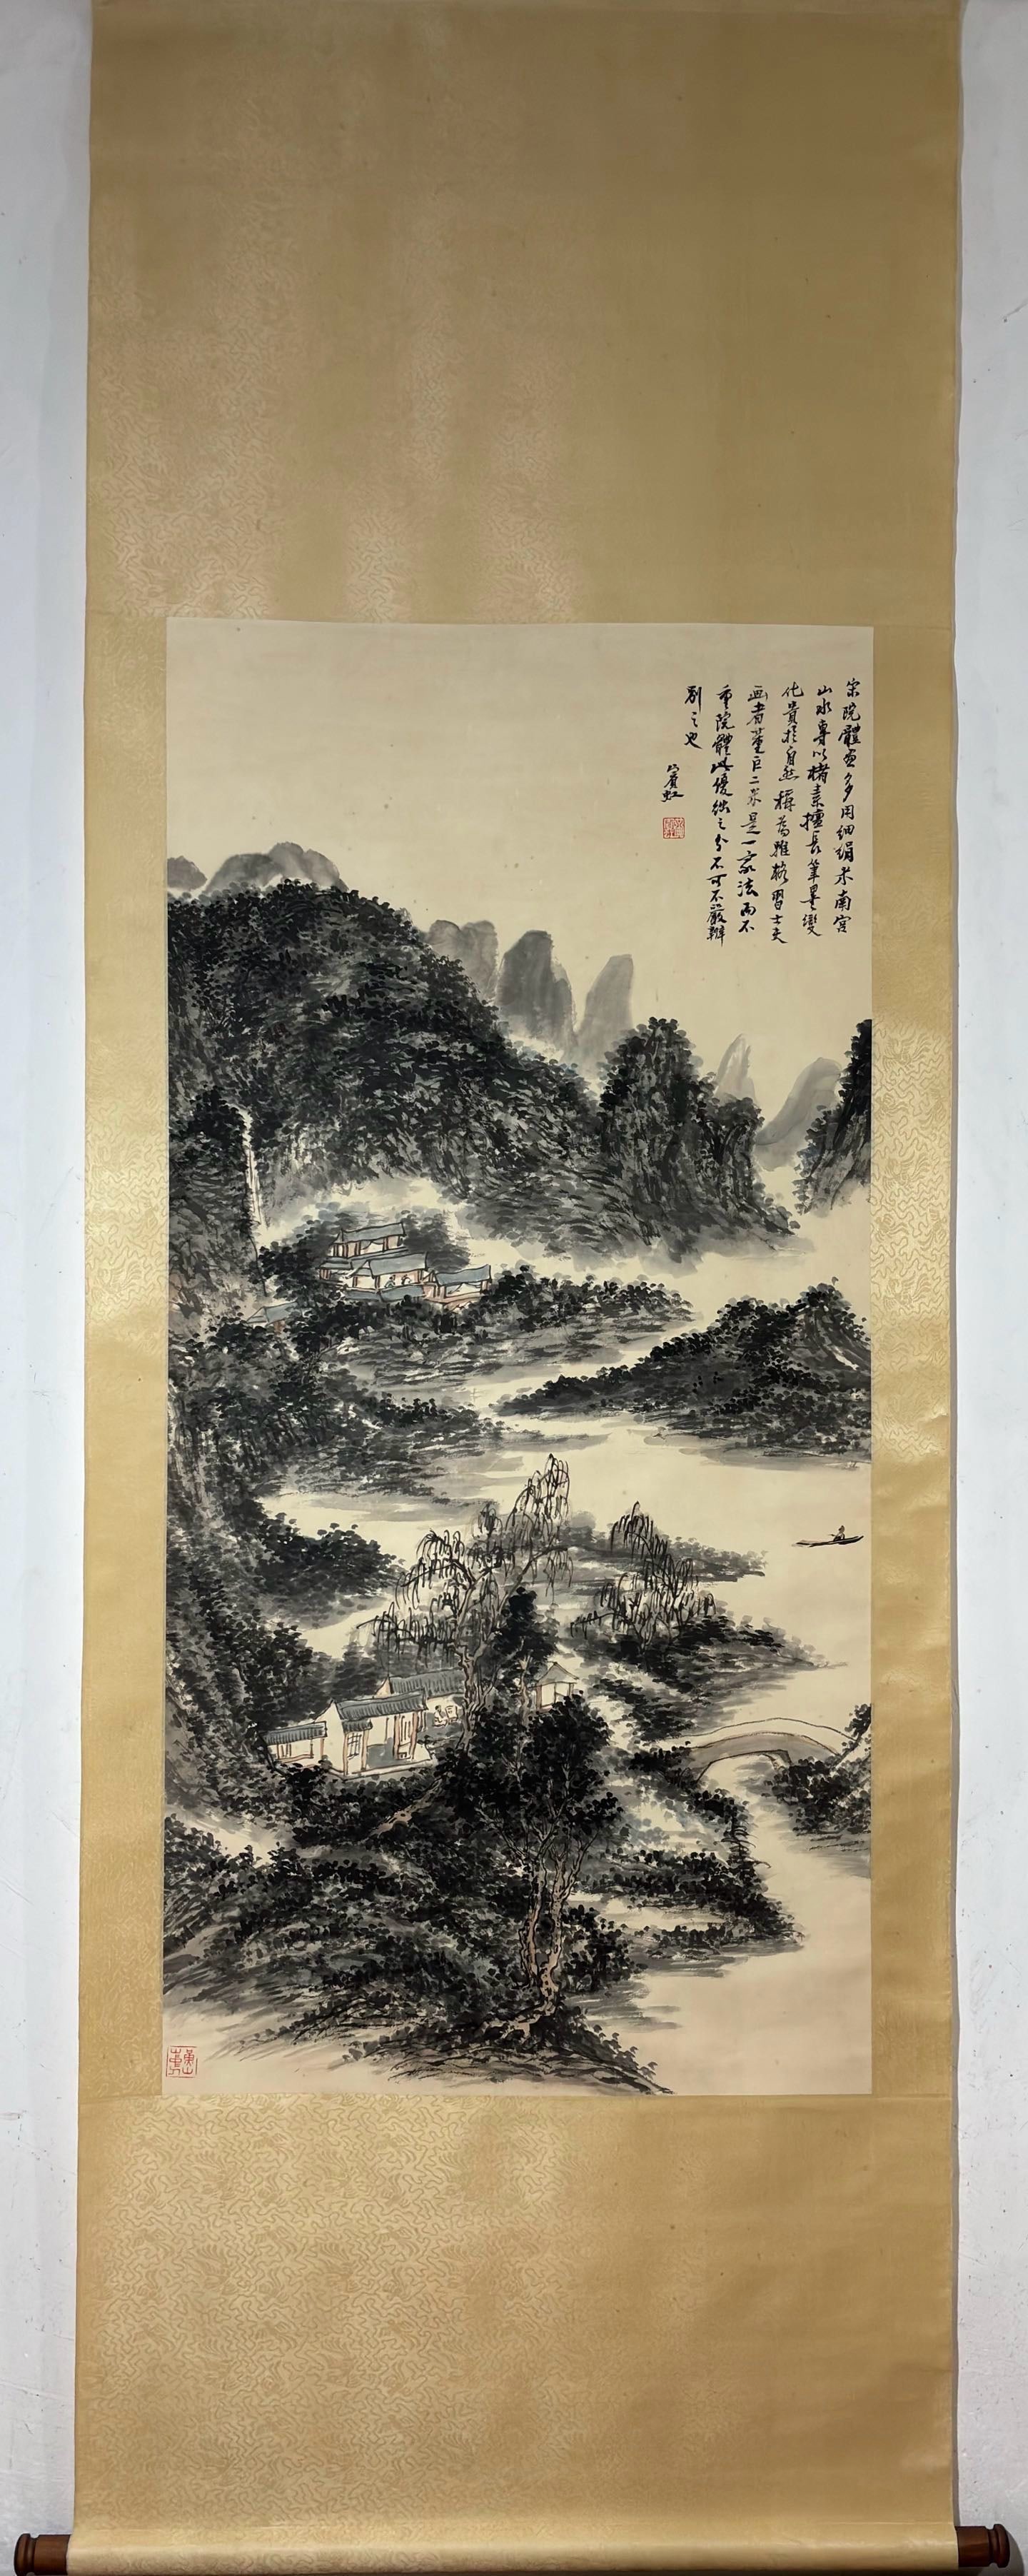 宋院體画多用細絹米南宮
山水專以楮素擅長筆墨變
化貴於自然稱為雅格習士夫
画者董巨二米是一家法而不
重院體此優絀之分不可不嚴辨
別之也
賓虹
黃山